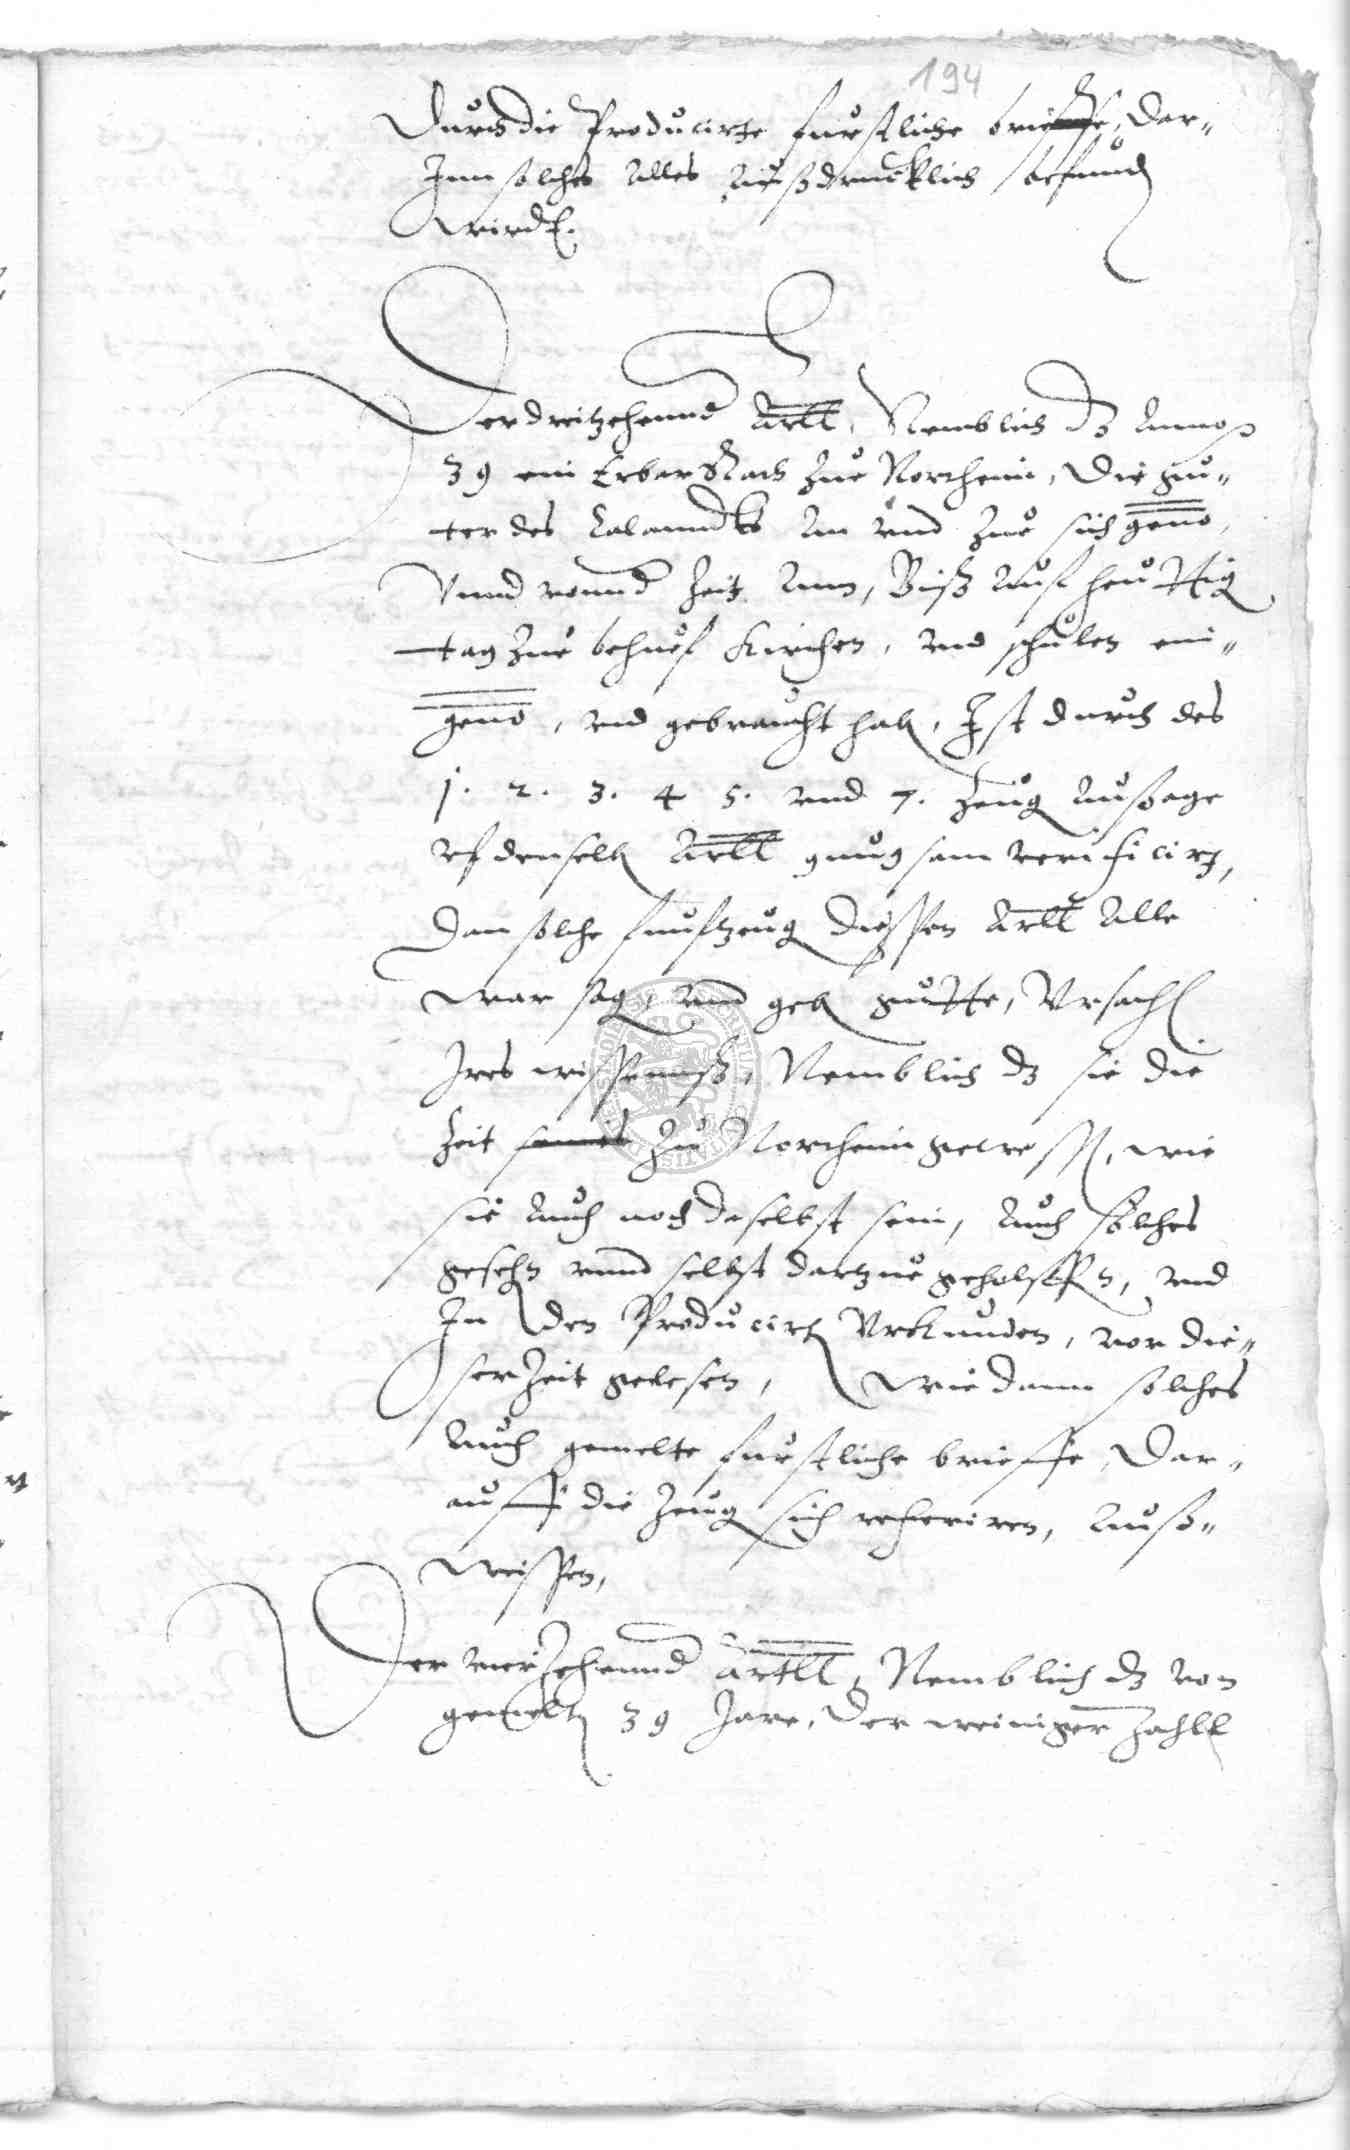 194
Durch die Producirte furstliche brieffe, Dar-
Inn solches Alles Außdrucklich befund
wirdt.
Der dreitzehennd Artll, Nemblich dz Anno
39 ein Erbar Rath zue Northeim, Die gu-
ter des Calanndts An vnd zue sich geno,
Vnnd vonnd Zeit Ann, Biß Auf heuttig
tag zue behuef Kirchen, vnd schulen ein-
geno, vnd gebraucht hab, Ist durch des
1. 2. 3. 4 5. vnd 7. Zeug Außage
vf denselb Artll gnugsam verificirt,
Dan solche funftzeug diessen Artll Alle
war sag, vnd geb gutte, Vrsach
Ires wissenns, Nemblich dz sie die
Zeit zu Northeim gewess, wie
sie Auch noch daselbst sein, Auch solches
gesehn vnnd selbst dartzue geholffen, vnd
In den Producirt Vrkunden, vor die-
ser Zeit gelesen, Wie dann solches
Auch gemelte furstliche brieffe, Dar-
auff die Zeug sich referiren, Auß-
weissen,
Der vierzehennd Artll, Nemblich dz von
gemelt 39 Jare, Der weiniger Zahll